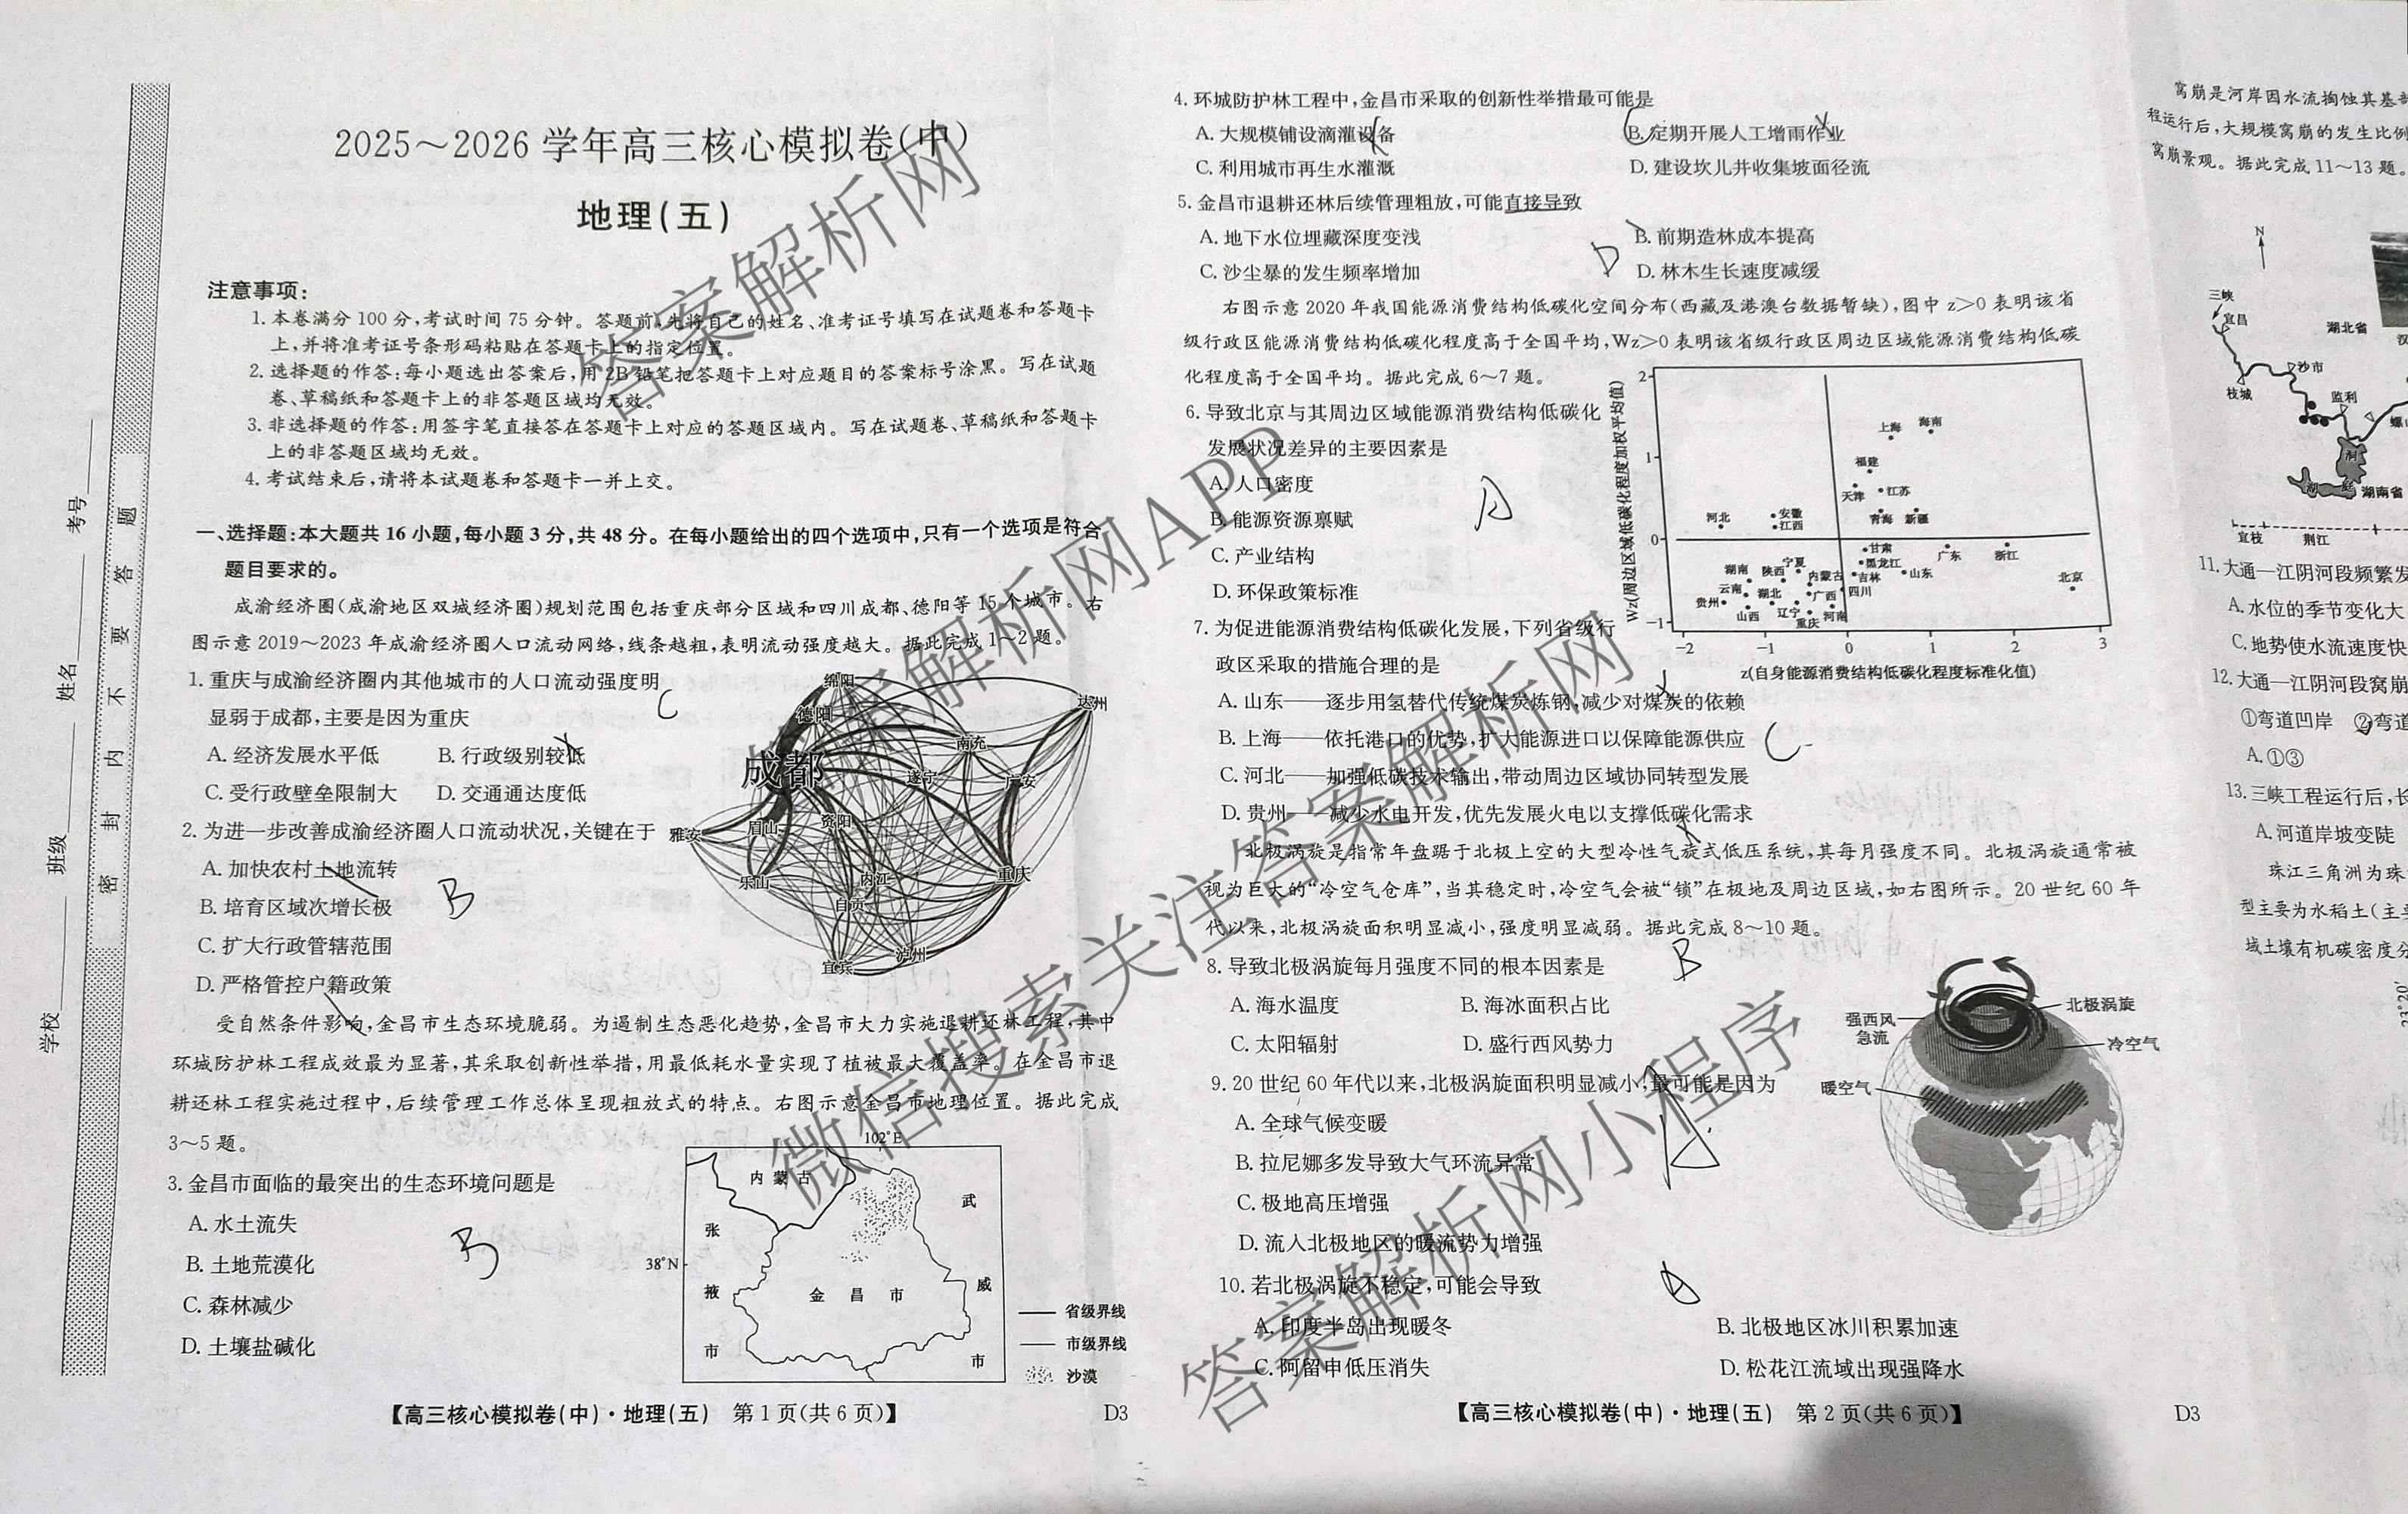 2025～2026学年高三核心模拟卷(中)
地理(五)
注意事项:
1.本卷满分100分,考试时间75分钟。答题前,先将自己的姓名、准考证号填写在试题卷和答题卡
上,并将准考证号条形码粘贴在答题卡上的指定位置。
2.选择题的作答:每小题选出答案后,用2B铅笔把答题卡上对应题目的答案标号涂黑。写在试题
卷、草稿纸和答题卡上的非答题区域均无效。
3.非选择题的作答:用签字笔直接答在答题卡上对应的答题区域内。写在试题卷、草稿纸和答题卡
上的非答题区域均无效。
4.考试结束后,请将本试题卷和答题卡一并上交。
一、选择题:本大题共16小题,每小题3分,共48分。在每小题给出的四个选项中,只有一个选项是符合
题目要求的。
成渝经济圈(成渝地区双城经济圈)规划范围包括重庆部分区域和四川成都、德阳等15个城市。右
图示意2019～2023年成渝经济圈人口流动网络,线条越粗,表明流动强度越大。据此完成1～2题。
1.重庆与成渝经济圈内其他城市的人口流动强度明
显弱于成都,主要是因为重庆
C
A.经济发展水平低 B.行政级别较低
C.受行政壁垒限制大 D.交通通达度低
2.为进一步改善成渝经济圈人口流动状况,关键在于
A.加快农村土地流转
B.培育区域次增长极
C.扩大行政管辖范围
D.严格管控户籍政策
B
绵阳
德阳
达州
成都
南充
遂宁
广安
雅安
眉山
资阳
乐山
内江
重庆
自贡
泸州
宜宾
受自然条件影响,金昌市生态环境脆弱。为遏制生态恶化趋势,金昌市大力实施退耕还林工程,其中
环城防护林工程成效最为显著,其采取创新性举措,用最低耗水量实现了植被最大覆盖率。在金昌市退
耕还林工程实施过程中,后续管理工作总体呈现粗放式的特点。右图示意金昌市地理位置。据此完成
3～5题。
3.金昌市面临的最突出的生态环境问题是
A.水土流失
B.土地荒漠化
C.森林减少
D.土壤盐碱化
B
102°E
内蒙古
张掖市
武威市
38°N
金昌市
省级界线
市级界线
沙漠
【高三核心模拟卷(中)·地理(五) 第1页(共6页)】
D3
学校
班级
姓名
考号
密封线内不要答题
4.环城防护林工程中,金昌市采取的创新性举措最可能是
A.大规模铺设滴灌设备 B.定期开展人工增雨作业
C.利用城市再生水灌溉 D.建设坎儿井收集坡面径流
C
5.金昌市退耕还林后续管理粗放,可能直接导致
A.地下水位埋藏深度变浅 B.前期造林成本提高
C.沙尘暴的发生频率增加 D.林木生长速度减缓
D
右图示意2020年我国能源消费结构低碳化空间分布(西藏及港澳台数据暂缺),图中z>0表明该省
级行政区能源消费结构低碳化程度高于全国平均,Wz>0表明该省级行政区周边区域能源消费结构低碳
化程度高于全国平均。据此完成6～7题。
6.导致北京与其周边区域能源消费结构低碳化
发展状况差异的主要因素是
A.人口密度
B.能源资源禀赋
C.产业结构
D.环保政策标准
A
7.为促进能源消费结构低碳化发展,下列省级行
政区采取的措施合理的是
A.山东——逐步用氢替代传统煤炭炼钢,减少对煤炭的依赖
B.上海——依托港口的优势,扩大能源进口以保障能源供应
C.河北——加强低碳技术输出,带动周边区域协同转型发展
D.贵州——减少水电开发,优先发展火电以支撑低碳化需求
C
Wz(周边区域低碳化程度加权平均值)
2
1
0
-1
上海 海南
福建
天津 江苏
河北 安徽
江西 青海 新疆
甘肃 广东 浙江
宁夏 黑龙江
湖南 陕西 内蒙古 吉林 山东 北京
云南 湖北 广西 四川
贵州 山西 辽宁 河南
重庆
-2 -1 0 1 2 3
z(自身能源消费结构低碳化程度标准化值)
北极涡旋是指常年盘踞于北极上空的大型冷性气旋式低压系统,其每月强度不同。北极涡旋通常被
视为巨大的“冷空气仓库”,当其稳定时,冷空气会被“锁”在极地及周边区域,如右图所示。20世纪60年
代以来,北极涡旋面积明显减小,强度明显减弱。据此完成8～10题。
8.导致北极涡旋每月强度不同的根本因素是
B
A.海水温度 B.海冰面积占比
C.太阳辐射 D.盛行西风势力
9.20世纪60年代以来,北极涡旋面积明显减小,最可能是因为
A.全球气候变暖
B.拉尼娜多发导致大气环流异常
C.极地高压增强
D.流入北极地区的暖流势力增强
10.若北极涡旋不稳定,可能会导致
A.印度半岛出现暖冬 B.北极地区冰川积累加速
C.阿留申低压消失 D.松花江流域出现强降水
北极涡旋
强西风
急流
冷空气
暖空气
【高三核心模拟卷(中)·地理(五) 第2页(共6页)】
D3
窝崩是河岸因水流掏蚀其基部
程运行后,大规模窝崩的发生比例
窝崩景观。据此完成11～13题。
N
三峡
宜昌
湖北省
沙市
枝城
监利
湖南省
宜枝 荆江
11.大通—江阴河段频繁发
A.水位的季节变化大
C.地势使水流速度快
12.大通—江阴河段窝崩
①弯道凹岸 ②弯道
A.①③
13.三峡工程运行后,长
A.河道岸坡变陡
珠江三角洲为珠
型主要为水稻土(主要
域土壤有机碳密度分
23°20′
答案解析网
微信搜索关注答案解析网APP
答案解析网
答案解析网小程序